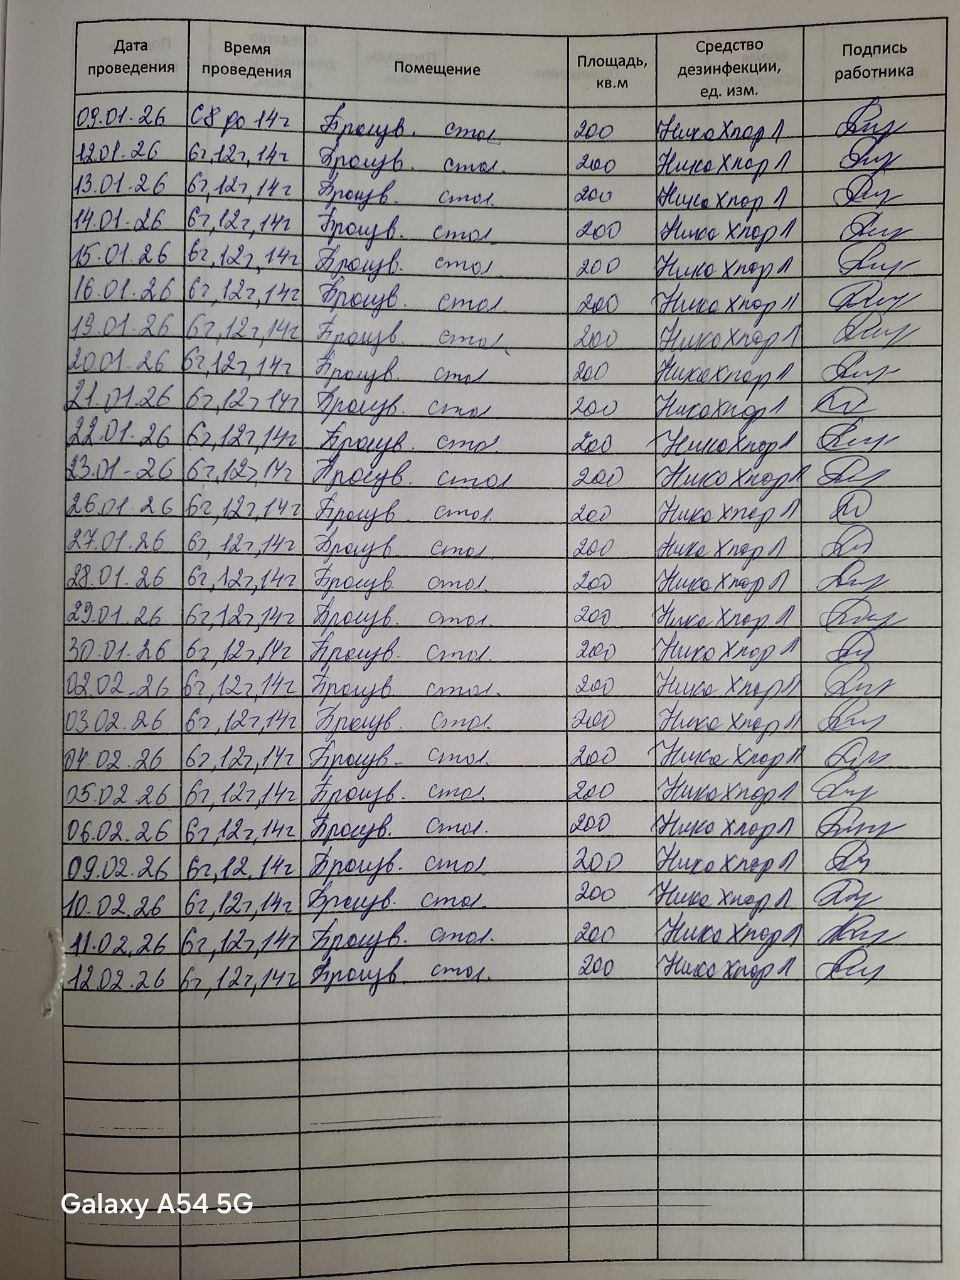 Дата проведения Время проведения Помещение Площадь, кв.м Средство дезинфекции, ед. изм. Подпись работника
09.01.26 С 8 до 14ч стол 200 Ника Хлор Л
12.01.26 6ч,12ч,14ч стол. 200 Ника Хлор Л
13.01.26 6ч,12ч,14ч стол 200 Ника Хлор Л
14.01.26 6ч,12ч,14ч стол 200 Ника Хлор Л
15.01.26 6ч,12ч,14ч стол 200 Ника Хлор Л
16.01.26 6ч,12ч,14ч стол 200 Ника Хлор Л
19.01.26 6ч,12ч,14ч стол 200 Ника Хлор Л
20.01.26 6ч,12ч,14ч стол 200 Ника Хлор Л
21.01.26 6ч,12ч,14ч стол 200 Ника Хлор Л
22.01.26 6ч,12ч,14ч стол 200 Ника Хлор Л
23.01.26 6ч,12ч,14ч стол 200 Ника Хлор Л
26.01.26 6ч,12ч,14ч стол. 200 Ника Хлор Л
27.01.26 6ч,12ч,14ч стол. 200 Ника Хлор Л
28.01.26 6ч,12ч,14ч стол. 200 Ника Хлор Л
29.01.26 6ч,12ч,14ч стол. 200 Ника Хлор Л
30.01.26 6ч,12ч,14ч стол. 200 Ника Хлор Л
02.02.26 6ч,12ч,14ч стол. 200 Ника Хлор Л
03.02.26 6ч,12ч,14ч стол. 200 Ника Хлор Л
04.02.26 6ч,12ч,14ч стол. 200 Ника Хлор Л
05.02.26 6ч,12ч,14ч стол. 200 Ника Хлор Л
06.02.26 6ч,12ч,14ч стол. 200 Ника Хлор Л
09.02.26 6ч,12,14ч стол 200 Ника Хлор Л
10.02.26 6ч,12ч,14ч стол. 200 Ника Хлор Л
11.02.26 6ч,12ч,14ч стол. 200 Ника Хлор Л
12.02.26 6ч,12ч,14ч стол. 200 Ника Хлор Л
Galaxy A54 5G